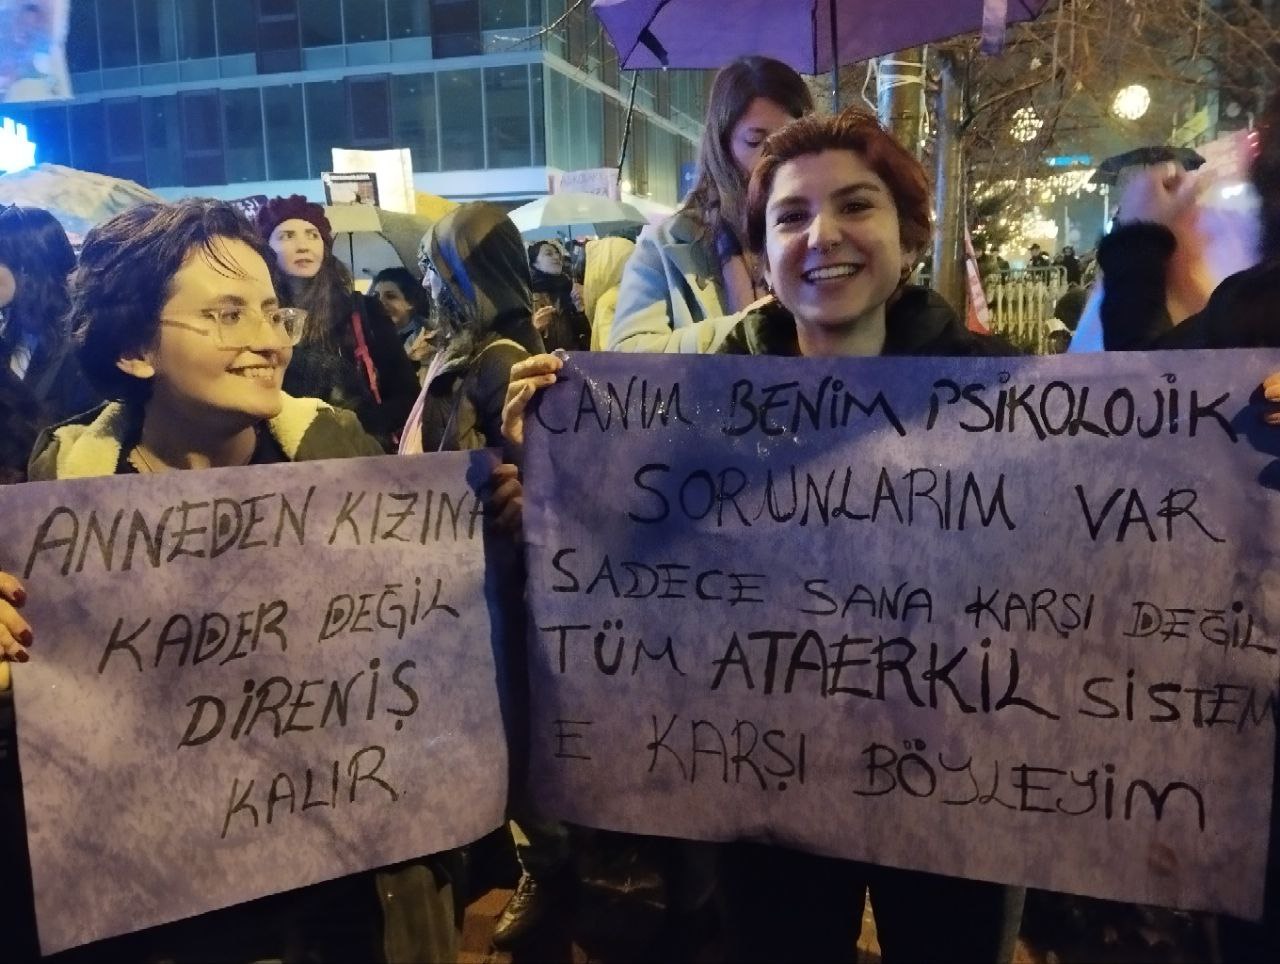 ANNEDEN KIZINA
KADER DEĞİL
DİRENİŞ
KALIR
CANIM BENİM PSİKOLOJİK
SORUNLARIM VAR
SADECE SANA KARŞI DEĞİL
TÜM ATAERKİL SİSTEM
E KARŞI BÖYLEYİM